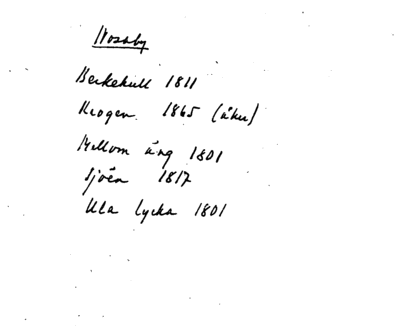 Nosaby
Berkekull 1811
Krogen. 1865 (åker)
Mellom äng 1801
Sjöen 1817
Ula lycka 1801